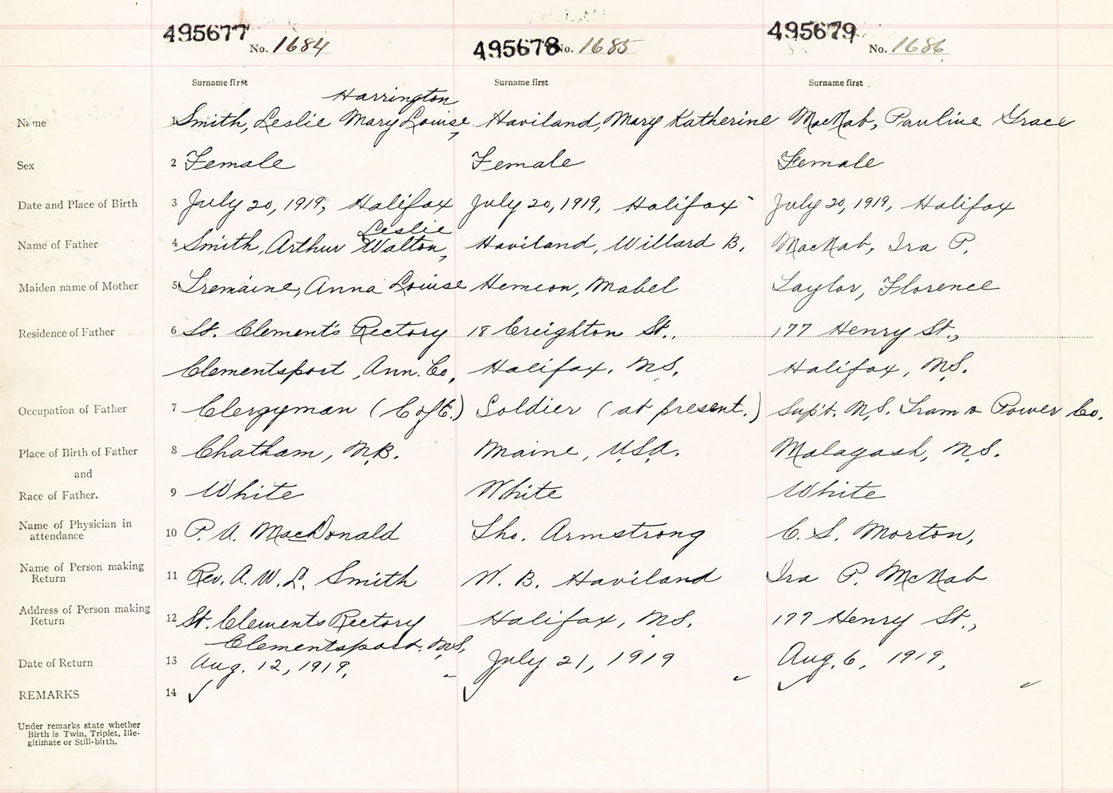 495677 No. 1684 495678 No. 1685 495679 No. 1686
Surname first Surname first Surname first
Harrington
Name 1 Smith, Leslie Mary Louise, Haviland, Mary Katherine MacNab, Pauline Grace
Sex 2 Female Female Female
Date and Place of Birth 3 July 20, 1919, Halifax July 20, 1919, Halifax July 20, 1919, Halifax
Leslie
Name of Father 4 Smith, Arthur Walton, Haviland, Willard B. MacNab, Ira P.
Maiden name of Mother 5 Tremaine, Anna Louise Hemeon, Mabel Taylor, Florence
Residence of Father 6 St. Clement's Rectory 18 Creighton St., 177 Henry St.,
Clementsport, Ann. Co., Halifax, N.S. Halifax, N.S.
Occupation of Father 7 Clergyman (C of E.) Soldier (at present.) Sup't. N.S. Tram & Power Co.
Place of Birth of Father 8 Chatham, N.B. Maine, U.S.A. Malagash, N.S.
and
Race of Father. 9 White White White
Name of Physician in
attendance 10 P. A. MacDonald Tho. Armstrong C. S. Morton,
Name of Person making
Return 11 Rev. A. W. L. Smith W. B. Haviland Ira P. McNab
Address of Person making
Return 12 St. Clements Rectory Halifax, N.S. 177 Henry St.,
Clementsport. N.S.
Date of Return 13 Aug. 12, 1919, July 21, 1919 Aug. 6, 1919,
REMARKS 14
Under remarks state whether
Birth is Twin, Triplet, Ille-
gitimate or Still-birth.